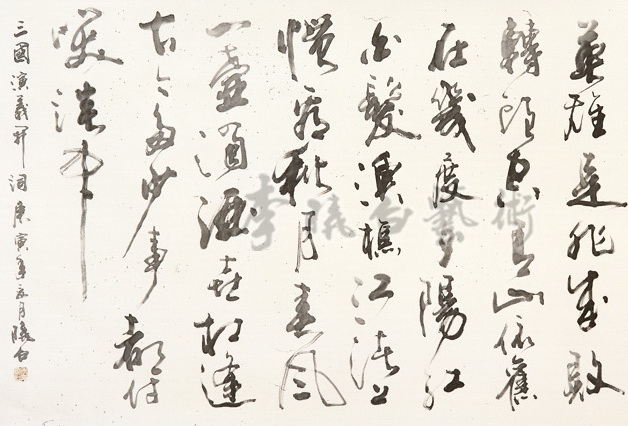 英雄是非成敗
轉頭空青山依舊
在幾度夕陽紅
白髮漁樵江渚上
慣看秋月春風
一壺濁酒喜相逢
古今多少事都付
笑談中
三國演義開詞庚寅年五月曉白
李曉白藝術